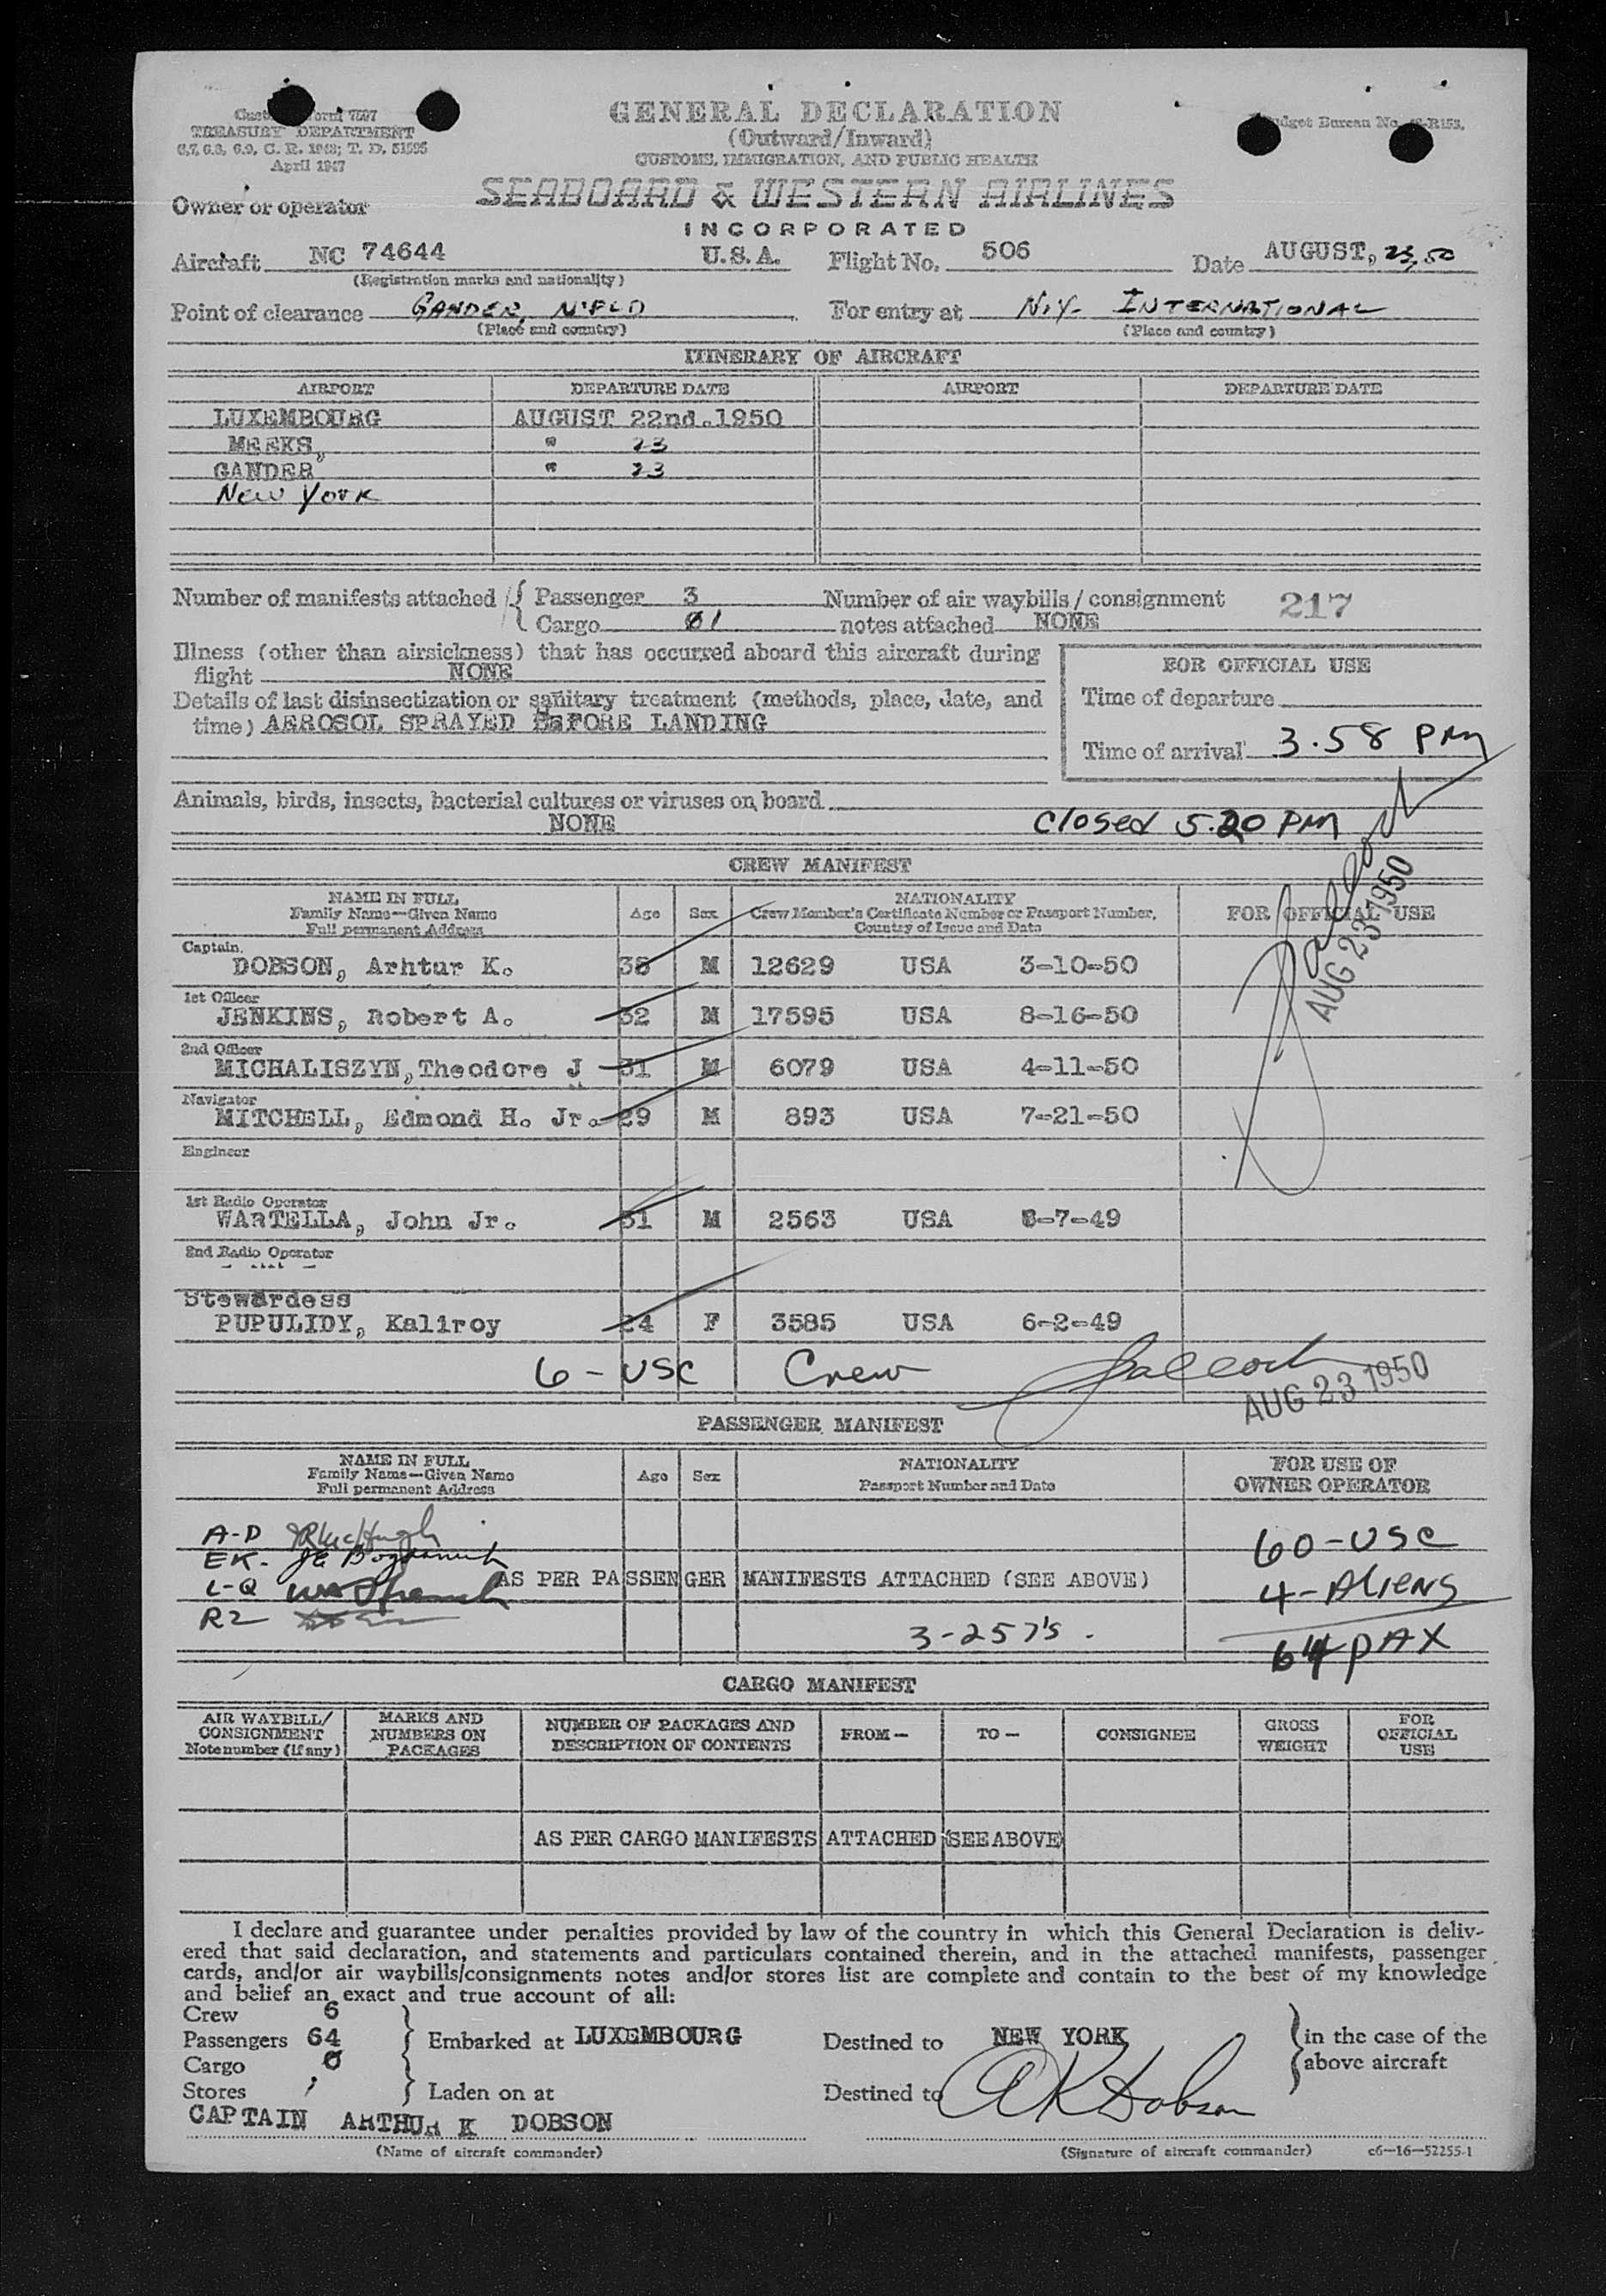 Form 7507
TREASURY DEPARTMENT
6.7, 6.8, 6.9, C. R. 1943; T. D. 51595
April 1947
GENERAL DECLARATION
(Outward/Inward)
CUSTOMS, IMMIGRATION, AND PUBLIC HEALTH
Budget Bureau No.
Owner or operator
SEABOARD & WESTERN AIRLINES
INCORPORATED
Aircraft NC 74644 U.S.A. Flight No. 506 Date AUGUST, 23, 50
(Registration marks and nationality)
Point of clearance GANDER, N'FLD For entry at N.Y. INTERNATIONAL
(Place and country) (Place and country)
ITINERARY OF AIRCRAFT
AIRPORT DEPARTURE DATE AIRPORT DEPARTURE DATE
LUXEMBOURG AUGUST 22nd.1950
MEEKS, " 23
GANDER " 23
New York
Number of manifests attached { Passenger 3 Number of air waybills / consignment 217
Cargo 01 notes attached NONE
Illness (other than airsickness) that has occurred aboard this aircraft during
flight NONE
FOR OFFICIAL USE
Details of last disinsectization or sanitary treatment (methods, place, date, and
time) AEROSOL SPRAYED BEFORE LANDING
Time of departure
Time of arrival 3.58 PM
Animals, birds, insects, bacterial cultures or viruses on board
NONE
Closed 5.20 PM
CREW MANIFEST
NAME IN FULL
Family Name—Given Name
Full permanent Address
Age Sex
NATIONALITY
Crew Member's Certificate Number or Passport Number,
Country of Issue and Date
FOR OFFICIAL USE
AUG 23 1950
Captain
DOBSON, Arhtur K. 38 M 12629 USA 3-10-50
1st Officer
JENKINS, Robert A. 32 M 17595 USA 8-16-50
2nd Officer
MICHALISZYN,Theodore J 31 M 6079 USA 4-11-50
Navigator
MITCHELL, Edmond H. Jr. 29 M 893 USA 7-21-50
Engineer
1st Radio Operator
WARTELLA, John Jr. 31 M 2563 USA -7-49
2nd Radio Operator
Stewardess
PUPULIDY, Kaliroy 24 F 3585 USA 6-2-49
6 - USC Crew
AUG 23 1950
PASSENGER MANIFEST
NAME IN FULL
Family Name—Given Name
Full permanent Address
Age Sex
NATIONALITY
Passport Number and Date
FOR USE OF
OWNER OPERATOR
A-D
EK-
L-Q
AS PER PASSENGER MANIFESTS ATTACHED (SEE ABOVE)
RZ
3-257's.
60-USC
4-Aliens
64 PAX
CARGO MANIFEST
AIR WAYBILL/
CONSIGNMENT
Note number (if any)
MARKS AND
NUMBERS ON
PACKAGES
NUMBER OF PACKAGES AND
DESCRIPTION OF CONTENTS
FROM — TO — CONSIGNEE
GROSS
WEIGHT
FOR
OFFICIAL
USE
AS PER CARGO MANIFESTS ATTACHED (SEE ABOVE)
I declare and guarantee under penalties provided by law of the country in which this General Declaration is deliv-
ered that said declaration, and statements and particulars contained therein, and in the attached manifests, passenger
cards, and/or air waybills/consignments notes and/or stores list are complete and contain to the best of my knowledge
and belief an exact and true account of all:
Crew 6
Passengers 64 Embarked at LUXEMBOURG Destined to NEW YORK in the case of the
Cargo 0 above aircraft
Stores Laden on at Destined to
AK Dobson
CAPTAIN ARTHUR K DOBSON
(Name of aircraft commander) (Signature of aircraft commander) c6—16—52255-1